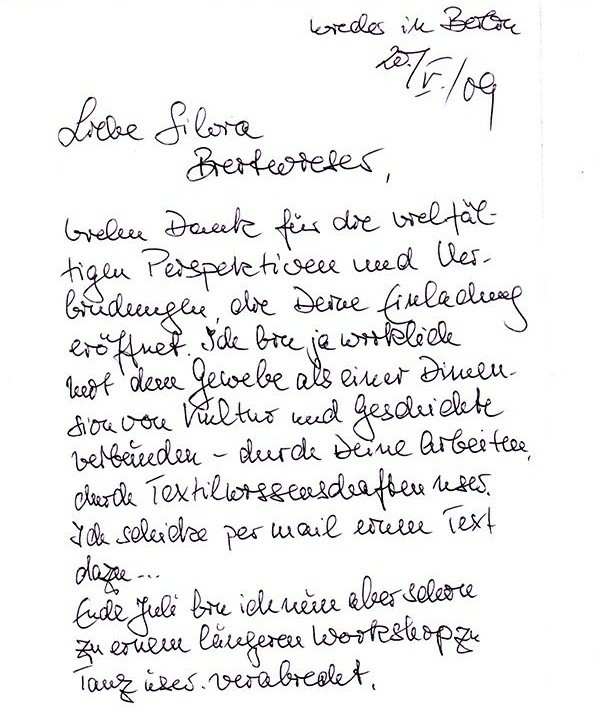 wieder in Berlin
20./V./09
Liebe Silvia
Breitwieser,
vielen Dank für die vielfäl-
tigen Perspektiven und Ver-
bindungen, die Deine Einladung
eröffnet. Ich bin ja wirklich
mit dem Gewebe als einer Dimen-
sion von Kultur und Geschichte
verbunden – durch Deine Arbeiten,
durch Textilwissenschaften usw.
Ich schicke per mail einen Text
dazu...
Ende Juli bin ich nun aber schon
zu einem längeren Workshop zu
Tanz usw. verabredet.